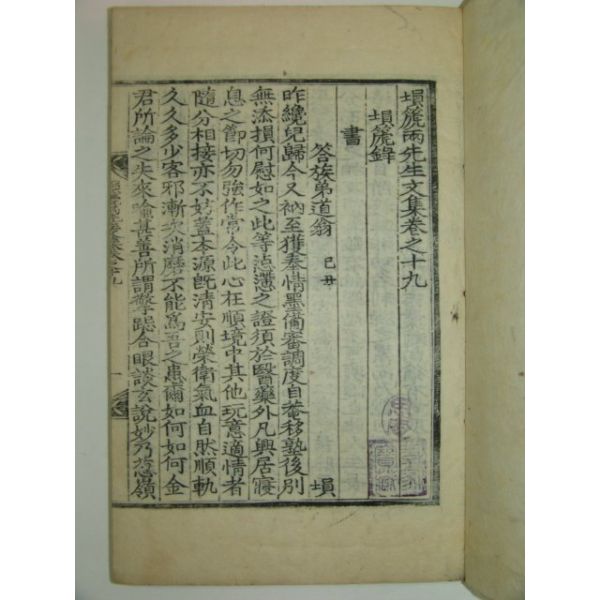 塤篪兩先生文集卷之十九
塤篪錄
書
答族弟道翁 己丑 塤
昨纔兒歸今又衲至獲奉情墨備審調度自菴移塾後別
無添損何慰如之此等㤼懣之證須於醫藥外凡興居寢
息之節切勿強作當令此心在順境中其他玩意適情者
隨分相接亦不妨蓋本源旣清安則榮衛氣血自然順軌
久久多少客邪漸次消磨不能爲吾之患爾如何如何金
君所論之失來喩甚善所謂擎跽合眼談玄說妙乃葱嶺